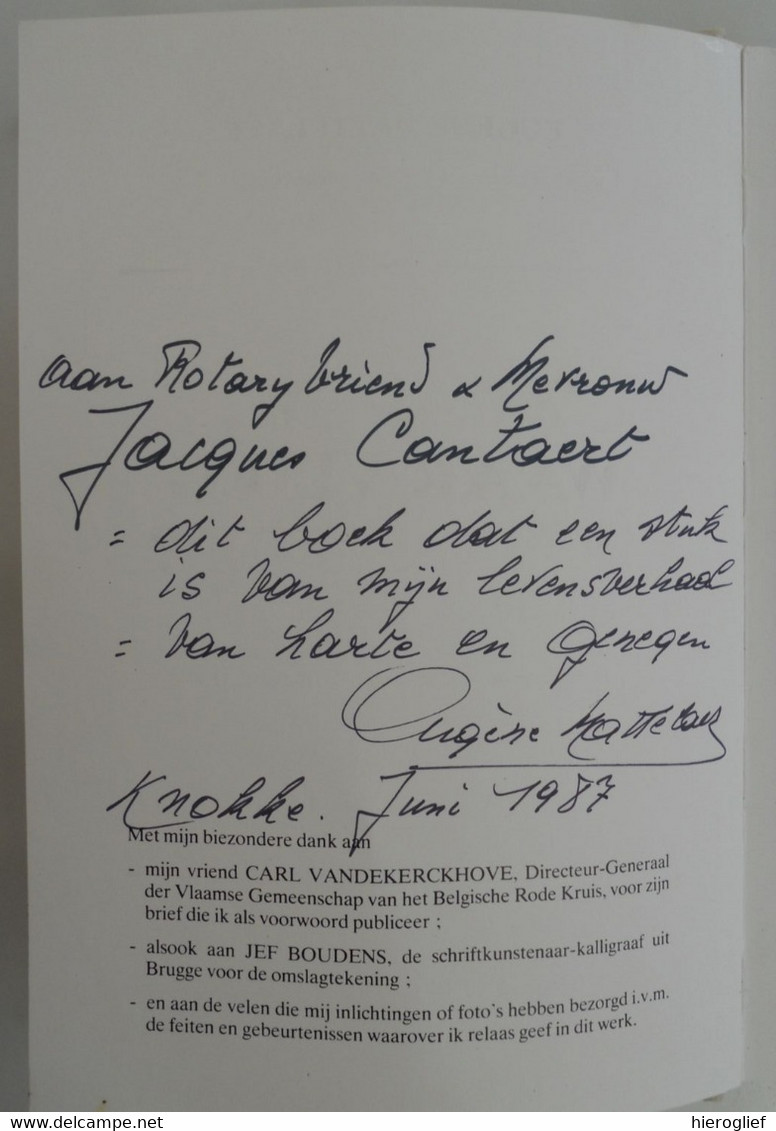 aan Rotary vriend & Mevrouw
Jacques Cantaert
= dit boek dat een stuk
is van mijn levensverhaal
= van harte en genegen
Eugène Mattelaer
Knokke. Juni 1987
Met mijn biezondere dank aan
- mijn vriend CARL VANDEKERCKHOVE, Directeur-Generaal
der Vlaamse Gemeenschap van het Belgische Rode Kruis, voor zijn
brief die ik als voorwoord publiceer ;
- alsook aan JEF BOUDENS, de schriftkunstenaar-kalligraaf uit
Brugge voor de omslagtekening ;
- en aan de velen die mij inlichtingen of foto's hebben bezorgd i.v.m.
de feiten en gebeurtenissen waarover ik relaas geef in dit werk.
www.delcampe.net
hieroglief